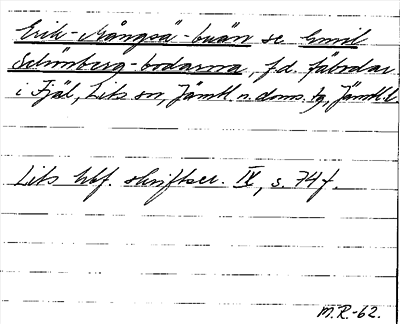 Erik-Mångsä-buän se Emil
Schönberg-bodarna, f.d. fäbodar
i Fjäl, Lits sn, Jämtl. n. doms. tg, Jämtl. l.
Lits hbf. skriftser. IX, s. 74 f.
M.R.-62.